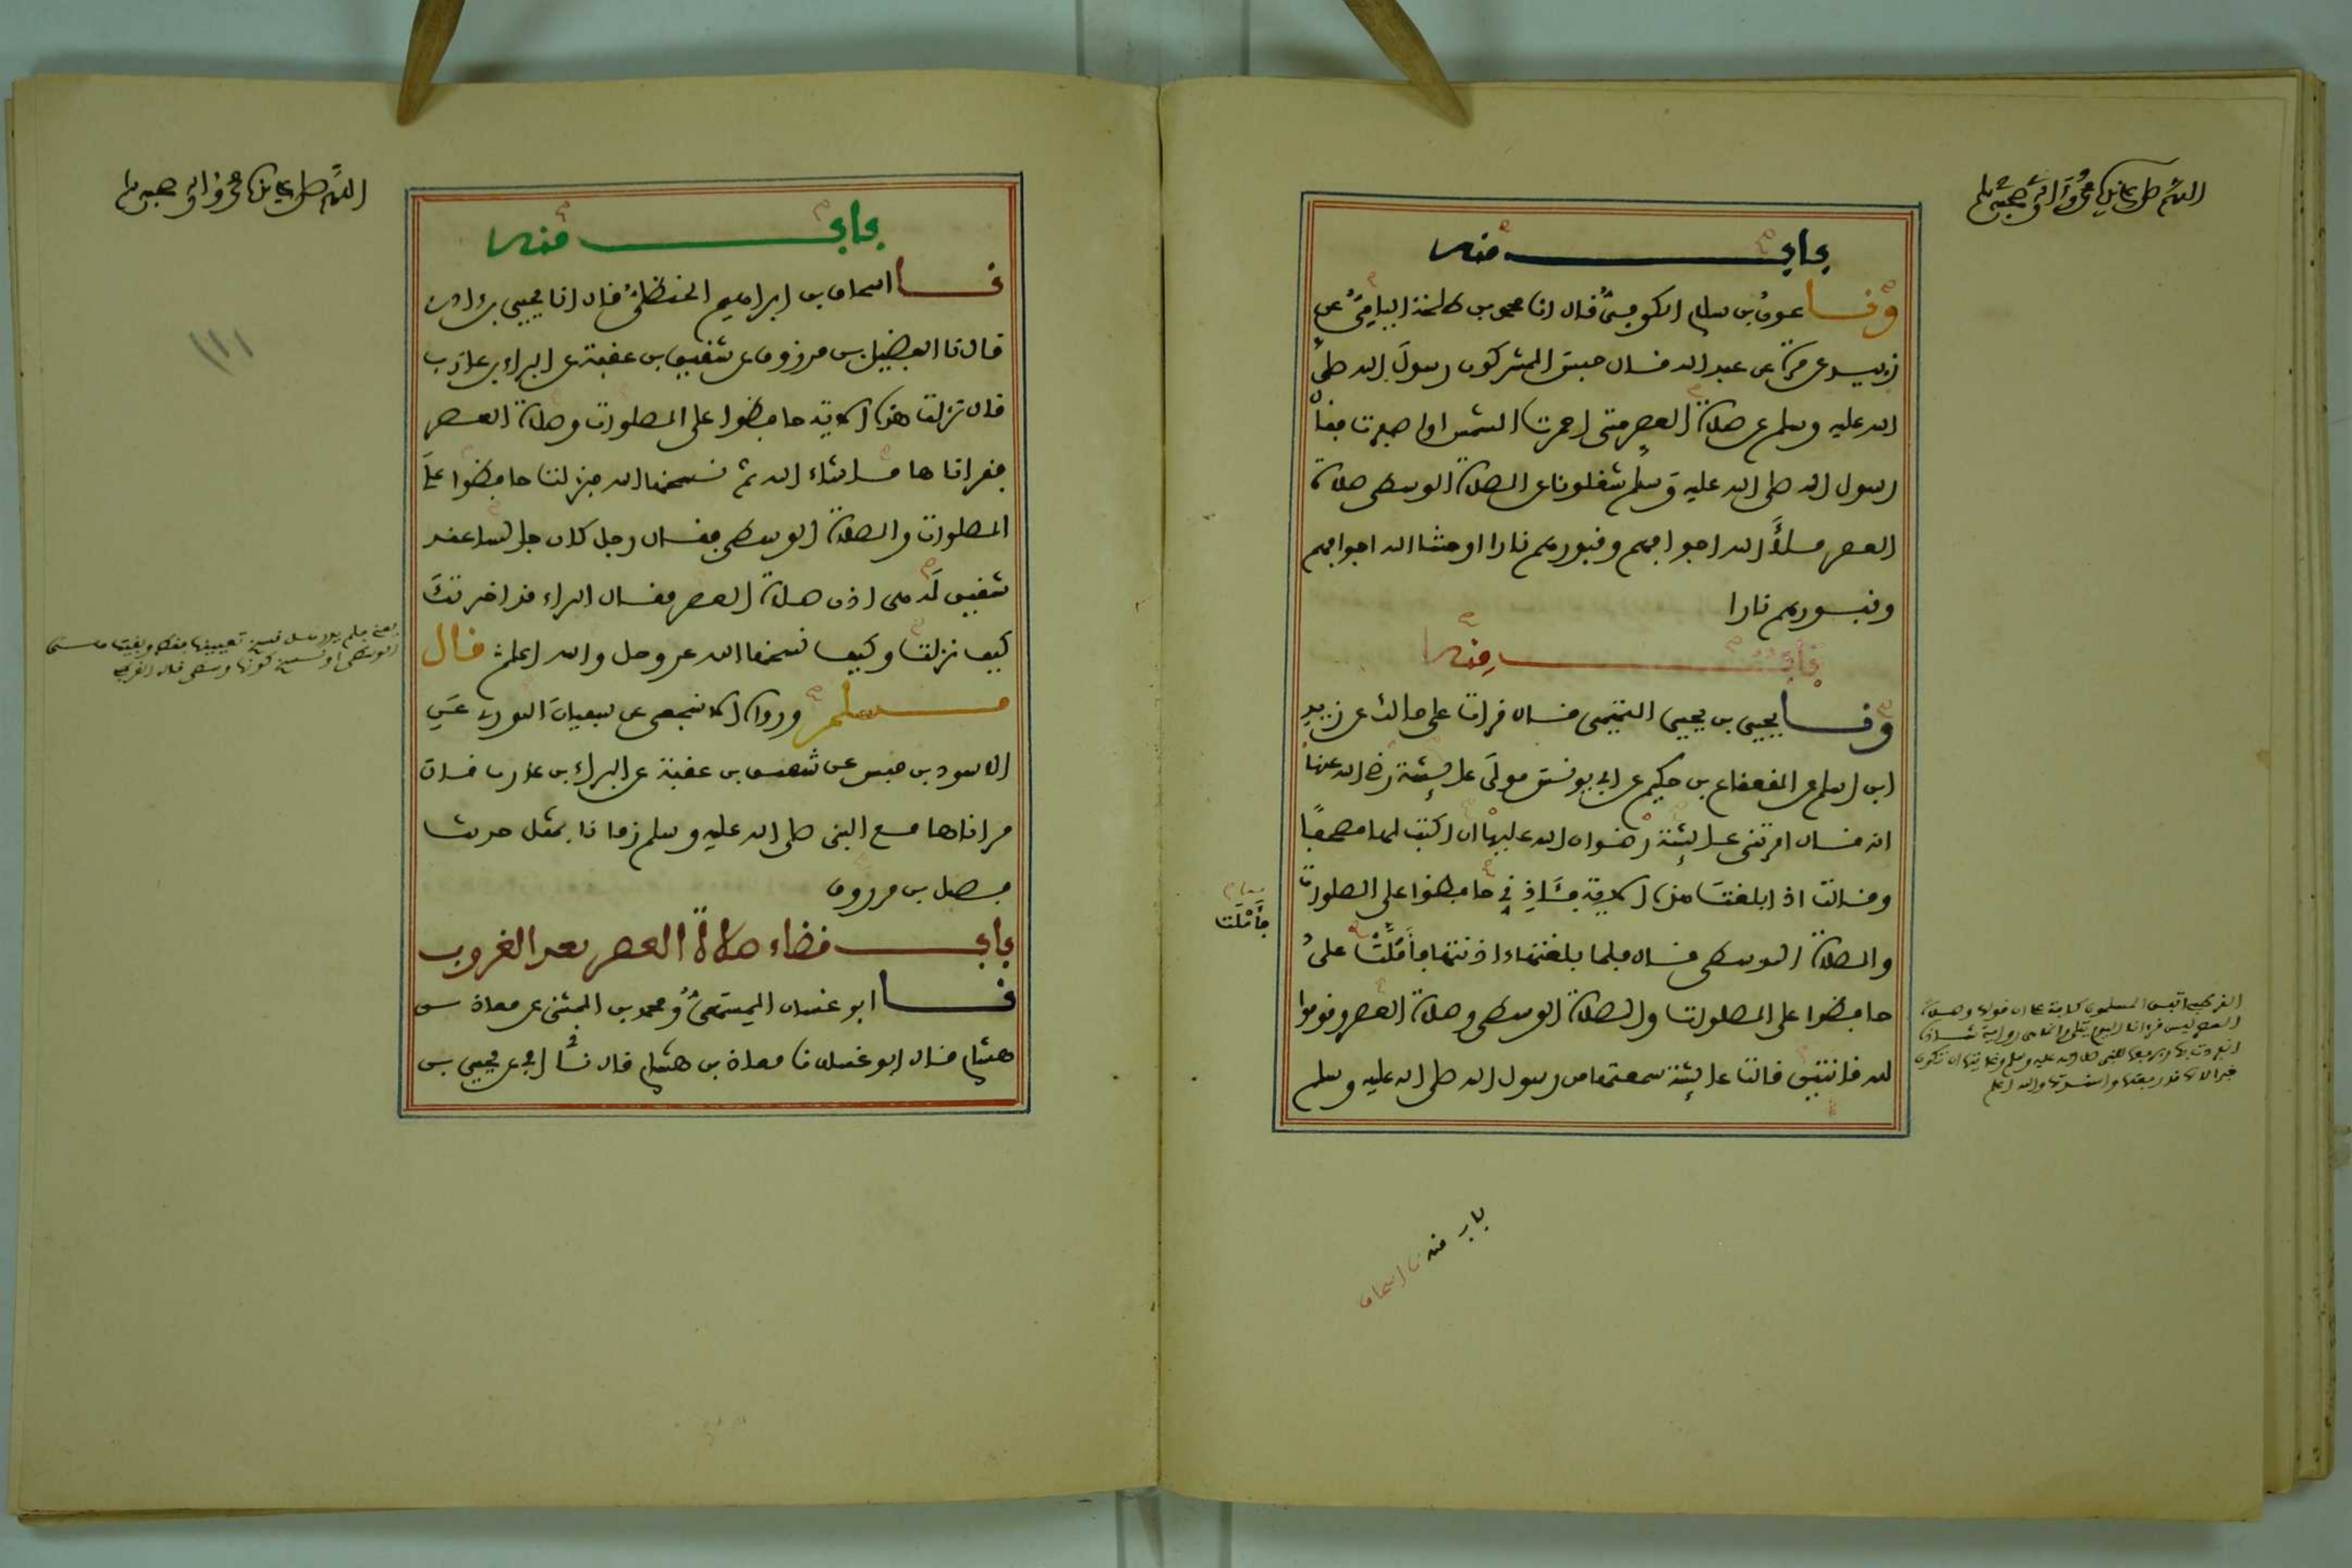 اللهم صل على سيدنا محمد وآله وصحبه وسلم
باب منه
ونا عون بن سلام الكوفي قال انا محمد بن طلحة اليامي عن
زبيد عن مرة عن عبد الله قال حبس المشركون رسول الله صلى
الله عليه وسلم عن صلاة العصر حتى احمرت الشمس او اصفرت فقال
رسول الله صلى الله عليه وسلم شغلونا عن الصلاة الوسطى صلاة
العصر ملأ الله اجوافهم وقبورهم نارا او حشا الله اجوافهم
وقبورهم نارا
باب منه
ونا يحيى بن يحيى التميمي قال قرات على مالك عن زيد
ابن اسلم عن القعقاع بن حكيم عن ابي يونس مولى عائشة رضي الله عنها
انه قال امرتني عائشة رضوان الله عليها ان اكتب لها مصحفا
وقالت اذا بلغت هذه الاية فآذني حافظوا على الصلوات
والصلاة الوسطى قال فلما بلغتها اذنتها فأملت علي
فأملت
حافظوا على الصلوات والصلاة الوسطى وصلاة العصر وقوموا
لله قانتين قالت عائشة سمعتها من رسول الله صلى الله عليه وسلم
القرطبي اتفق المسلمون كافة على ان قوله وصلاة
العصر ليس قرانا اليوم يتلى وانما هي رواية شاذة
باب منه نا اسحاق
اللهم صل على سيدنا محمد وآله وصحبه وسلم
باب منه
نا اسحاق بن ابراهيم الحنظلي قال انا يحيى بن ادم
قال نا الفضيل بن مرزوق عن شقيق بن عقبة عن البراء بن عازب
قال نزلت هذه الاية حافظوا على الصلوات وصلاة العصر
فقراناها ما شاء الله ثم نسخها الله فنزلت حافظوا على
الصلوات والصلاة الوسطى فقال رجل كان جالسا عند
شقيق له هي اذن صلاة العصر فقال البراء قد اخبرتك
كيف نزلت وكيف نسخها الله عز وجل والله اعلم قال
مسلم ورواه الاشجعي عن سفيان الثوري عن
الاسود بن قيس عن شقيق بن عقبة عن البراء بن عازب قال
قراناها مع النبي صلى الله عليه وسلم زمانا بمثل حديث
فضيل بن مرزوق
باب قضاء صلاة العصر بعد الغروب
نا ابو غسان المسمعي ومحمد بن المثنى عن معاذ بن
هشام قال ابو غسان نا معاذ بن هشام قال نا ابي عن يحيى بن
١١١